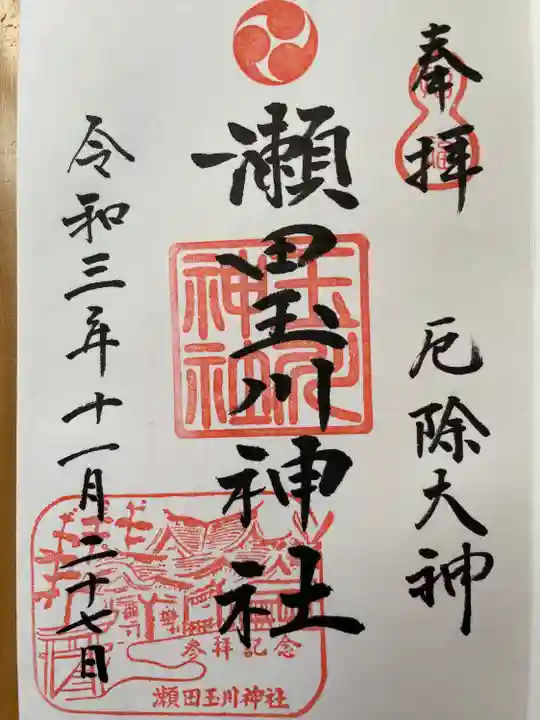 奉拝
厄除大神
瀬田玉川神社
令和三年十一月二十七日
玉川
神社
参拝記念
瀬田玉川神社